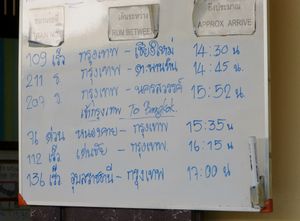 ขบวนรถที่ เดินระหว่าง ถึงประมาณ
TRAIN NO. RUN BETWEEN APPROX ARRIVE
109 เร็ว กรุงเทพ - เชียงใหม่ 14:30 น
211 ธ. กรุงเทพ - ตะพานหิน 14:45 น.
209 ธ. กรุงเทพ - นครสวรรค์ 15:52 น
เข้ากรุงเทพ To Bangkok
76 ด่วน หนองคาย - กรุงเทพ 15:35 น
112 เร็ว เด่นชัย - กรุงเทพ 16:15 น
136 เร็ว อุบลราชธานี - กรุงเทพ 17:00 น